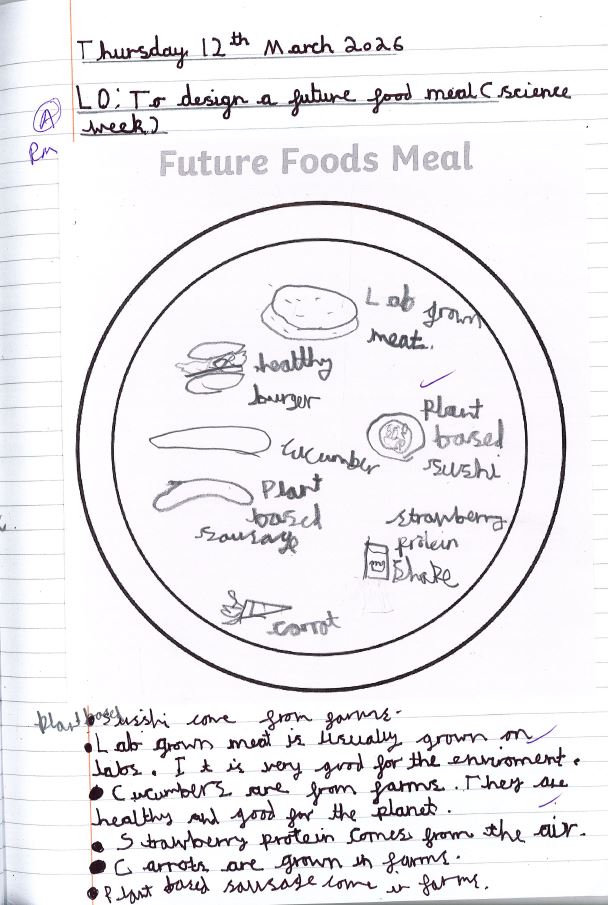 Thursday 12th March 2026
LO: To design a future food meal (science
week)
A
RM
Future Foods Meal
Lab grown
meat.
healthy
burger
plant
based
sushi
Cucumber
Plant
based
sausage
strawberry
protein
shake
carrot
plant based sushi come from farms.
Lab grown meat is usually grown on
labs. It is very good for the enviroment.
Cucumbers are from farms. They are
healthy and good for the planet.
Strawberry protein comes from the air.
Carrots are grown in farms.
Plant based sausage come in farms.